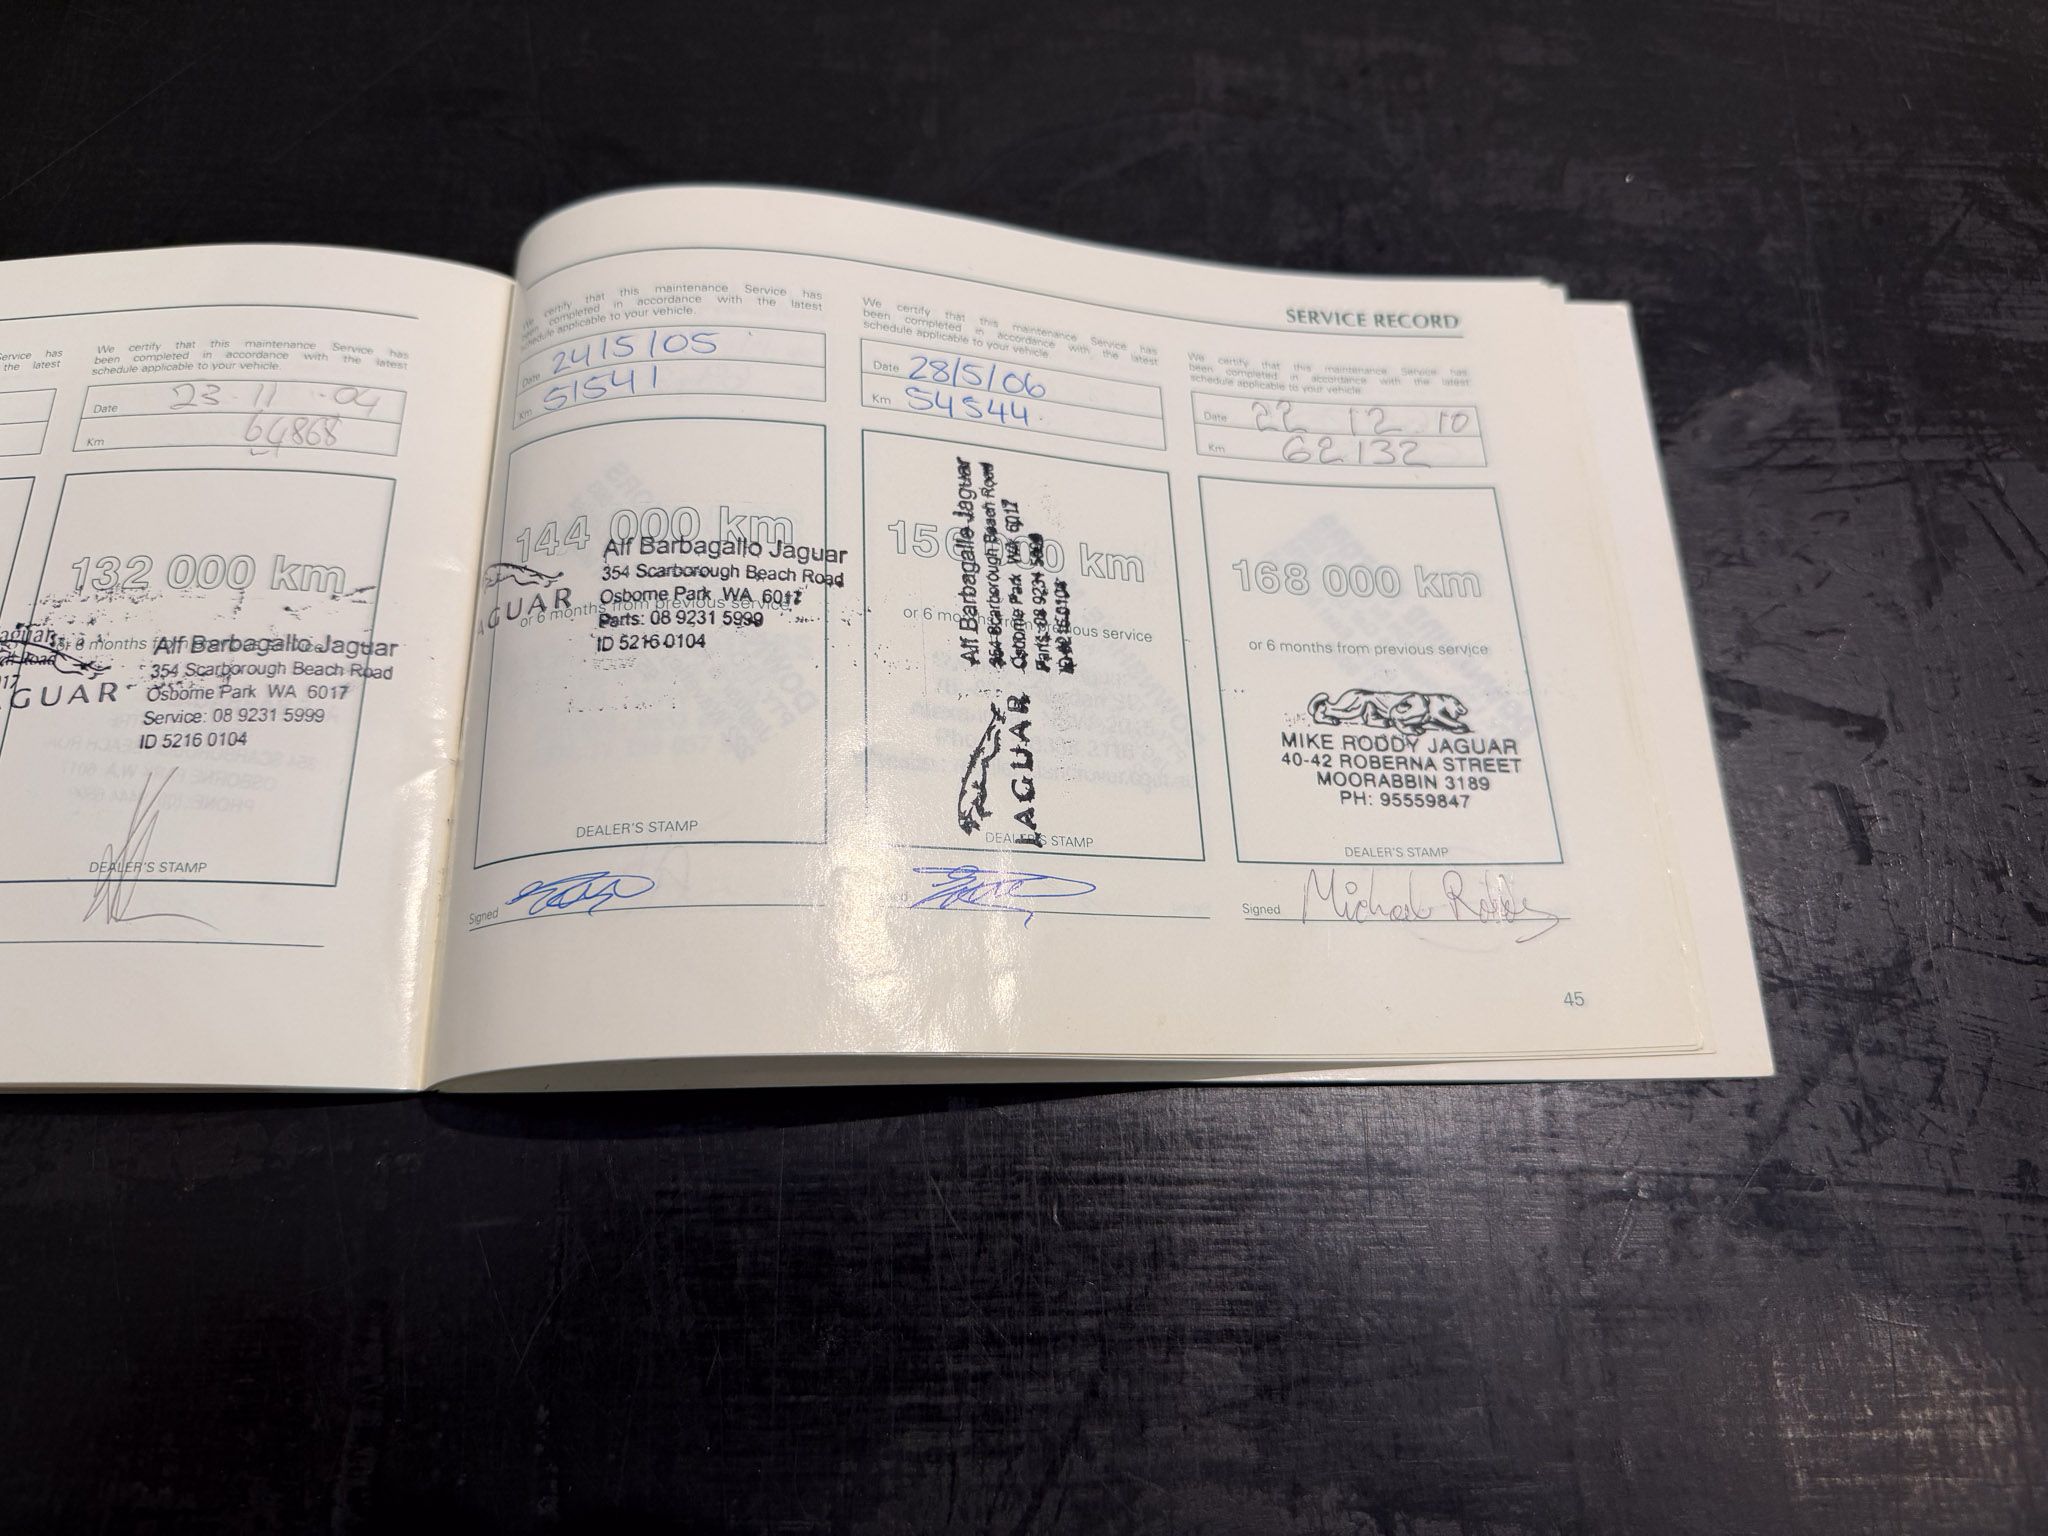 ervice has
the latest
aguar
ch Road
17
We certify that this maintenance Service has
been completed in accordance with the latest
schedule applicable to your vehicle.
Date 23 · 11 · 04
Km 64868
132 000 km
or 6 months
Alf Barbagallo Jaguar
354 Scarborough Beach Road
Osborne Park WA 6017
Service: 08 9231 5999
ID 5216 0104
GUAR
DEALER'S STAMP
SERVICE RECORD
We certify that this maintenance Service has
been completed in accordance with the latest
schedule applicable to your vehicle.
Date 24/5/05
Km 51541
144 000 km
or 6 months from previous service
Alf Barbagallo Jaguar
354 Scarborough Beach Road
Osborne Park WA 6017
Parts: 08 9231 5999
ID 5216 0104
AGUAR
DEALER'S STAMP
Signed
We certify that this maintenance Service has
been completed in accordance with the latest
schedule applicable to your vehicle.
Date 28/5/06
Km 54544
156 000 km
or 6 months from previous service
Alf Barbagallo Jaguar
354 Scarborough Beach Road
Osborne Park WA 6017
Parts: 08 9231 5999
ID 5216 0104
JAGUAR
DEALER'S STAMP
We certify that this maintenance Service has
been completed in accordance with the latest
schedule applicable to your vehicle.
Date 22 12 10
Km 62132
168 000 km
or 6 months from previous service
MIKE RODDY JAGUAR
40-42 ROBERNA STREET
MOORABBIN 3189
PH: 95559847
DEALER'S STAMP
Signed Michael Roddy
45